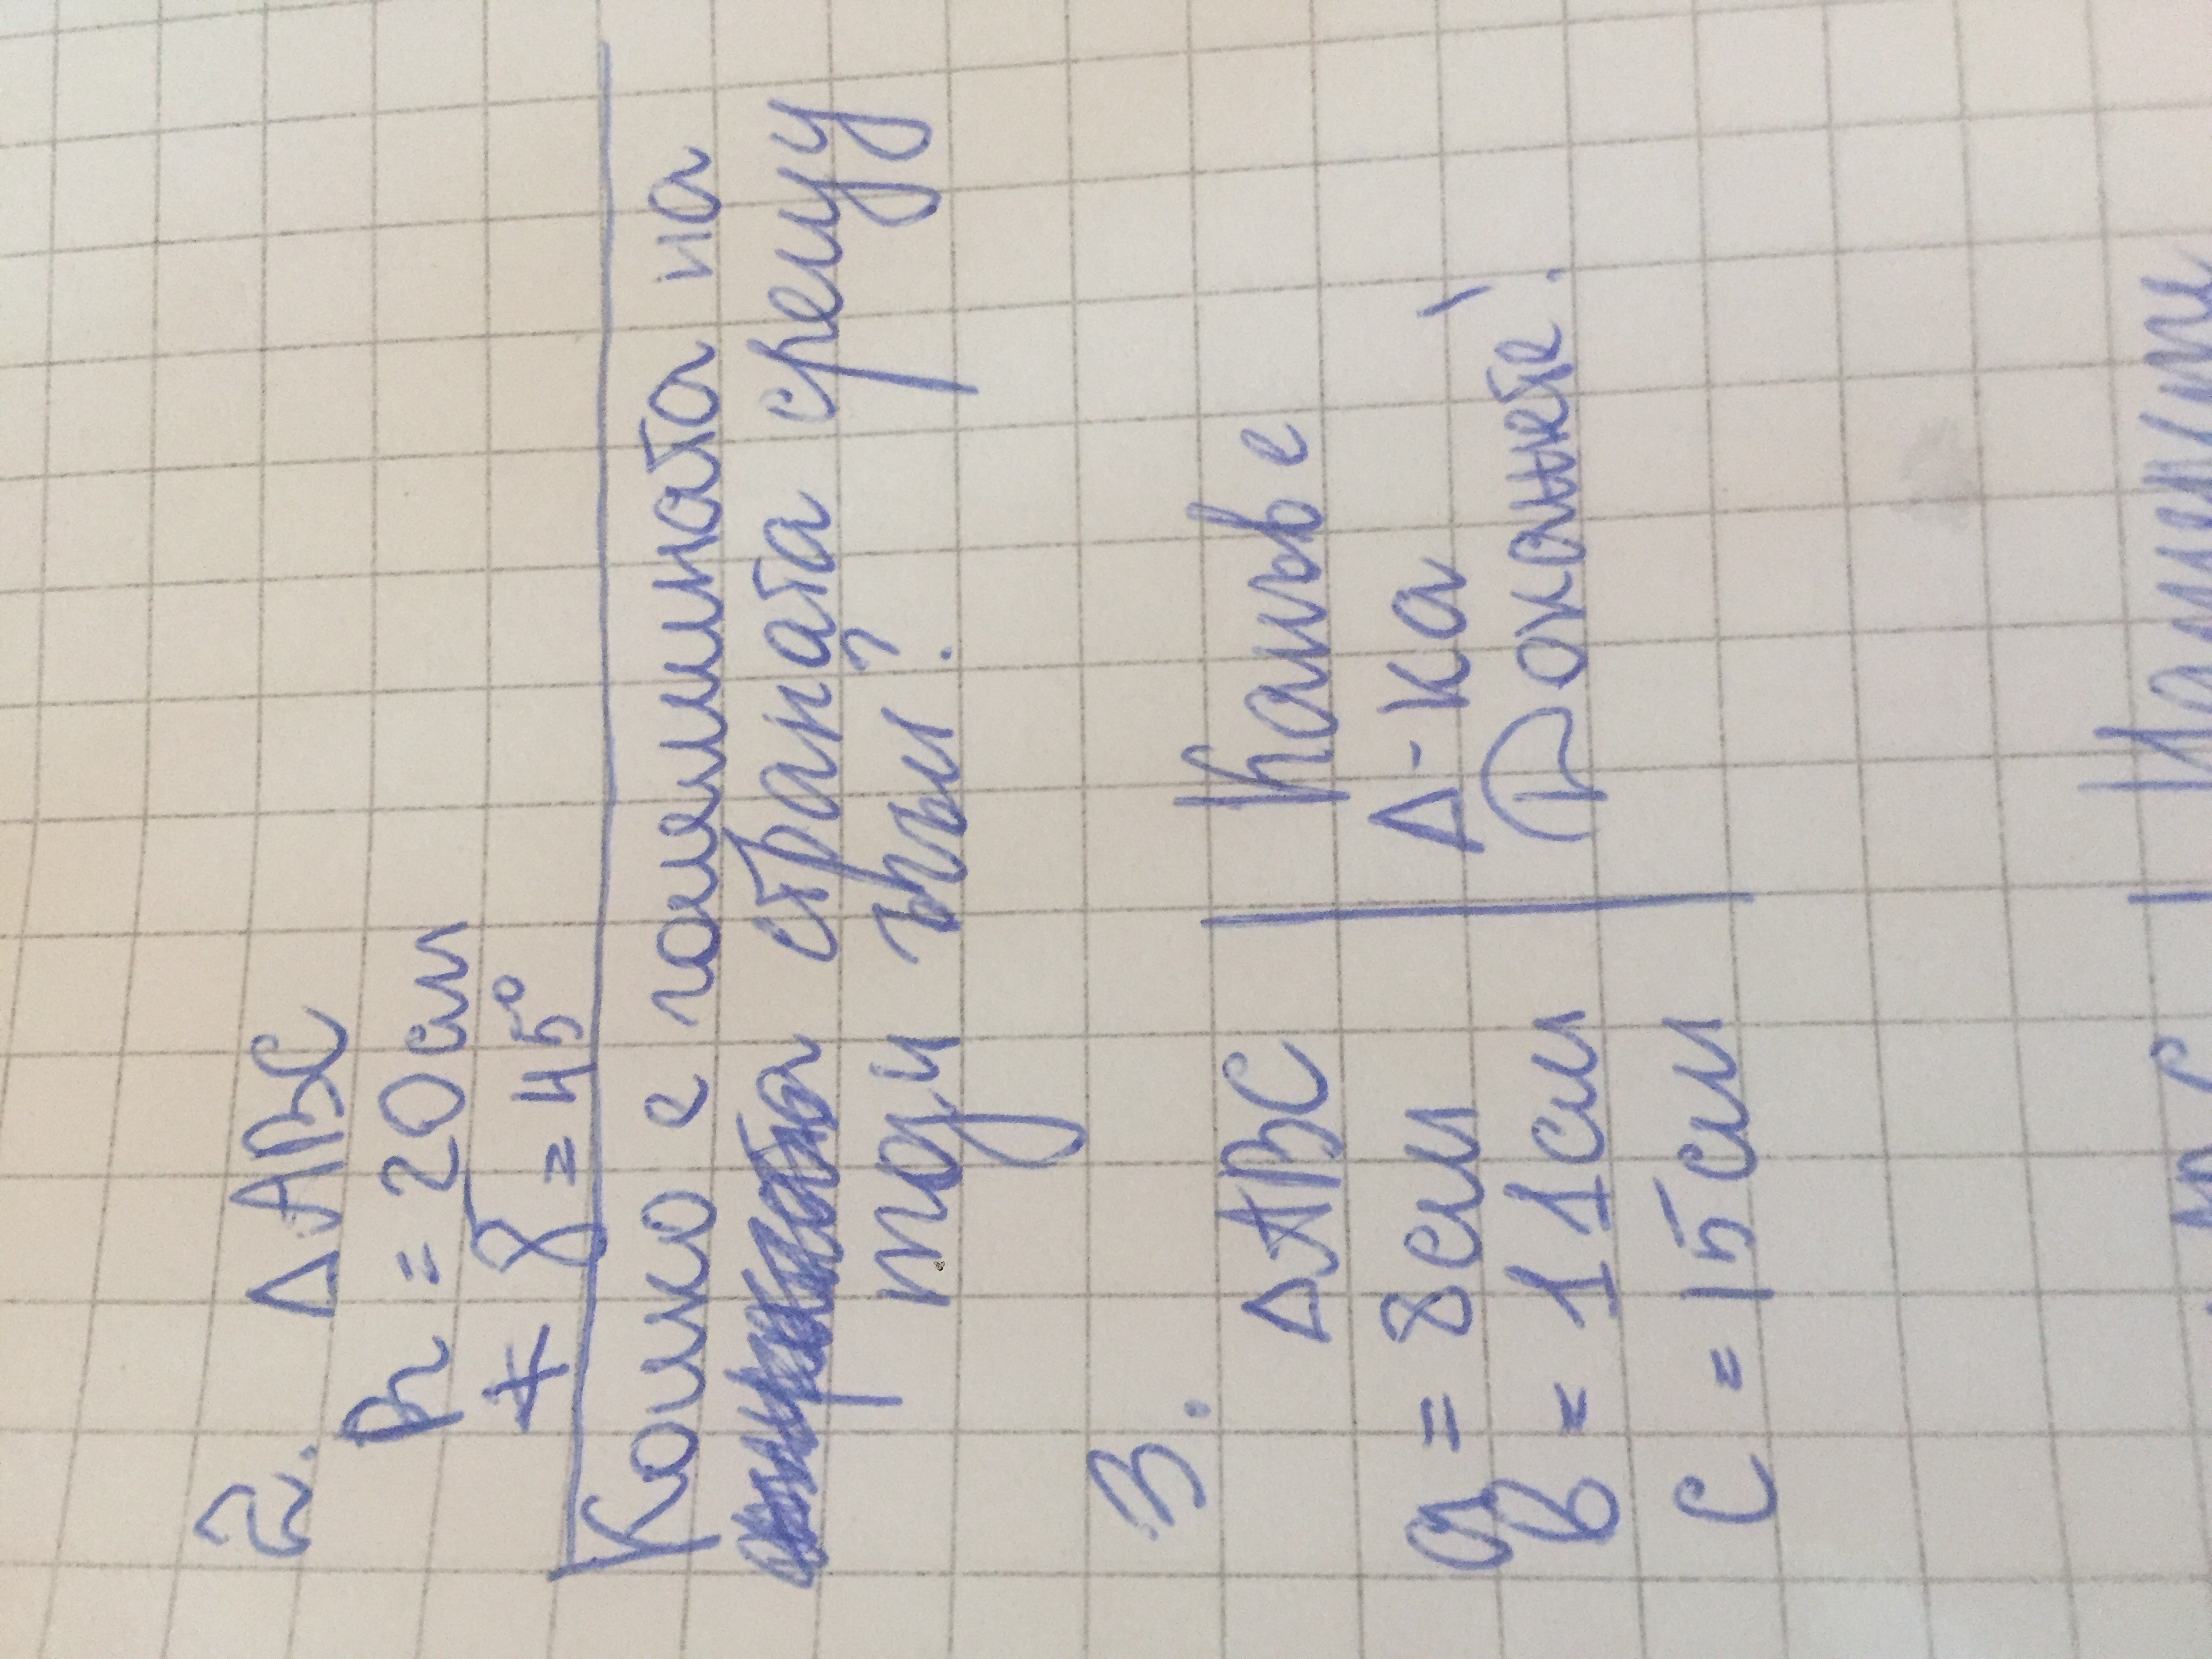 2. ΔABC
R = 20 см
∢ γ = 45°
Колко е големината на
страната срещу
този ъгъл?
3. ΔABC
a = 8 см
b = 11 см
c = 15 см
Какъв е
Δ-ка
Докажете!